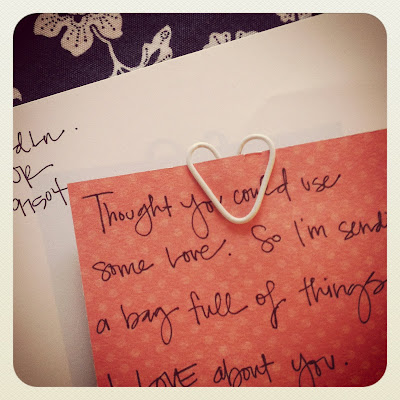 Ln.
OR
97504
Thought you could use
some love. So I'm send
a bag full of things
I LOVE about you.